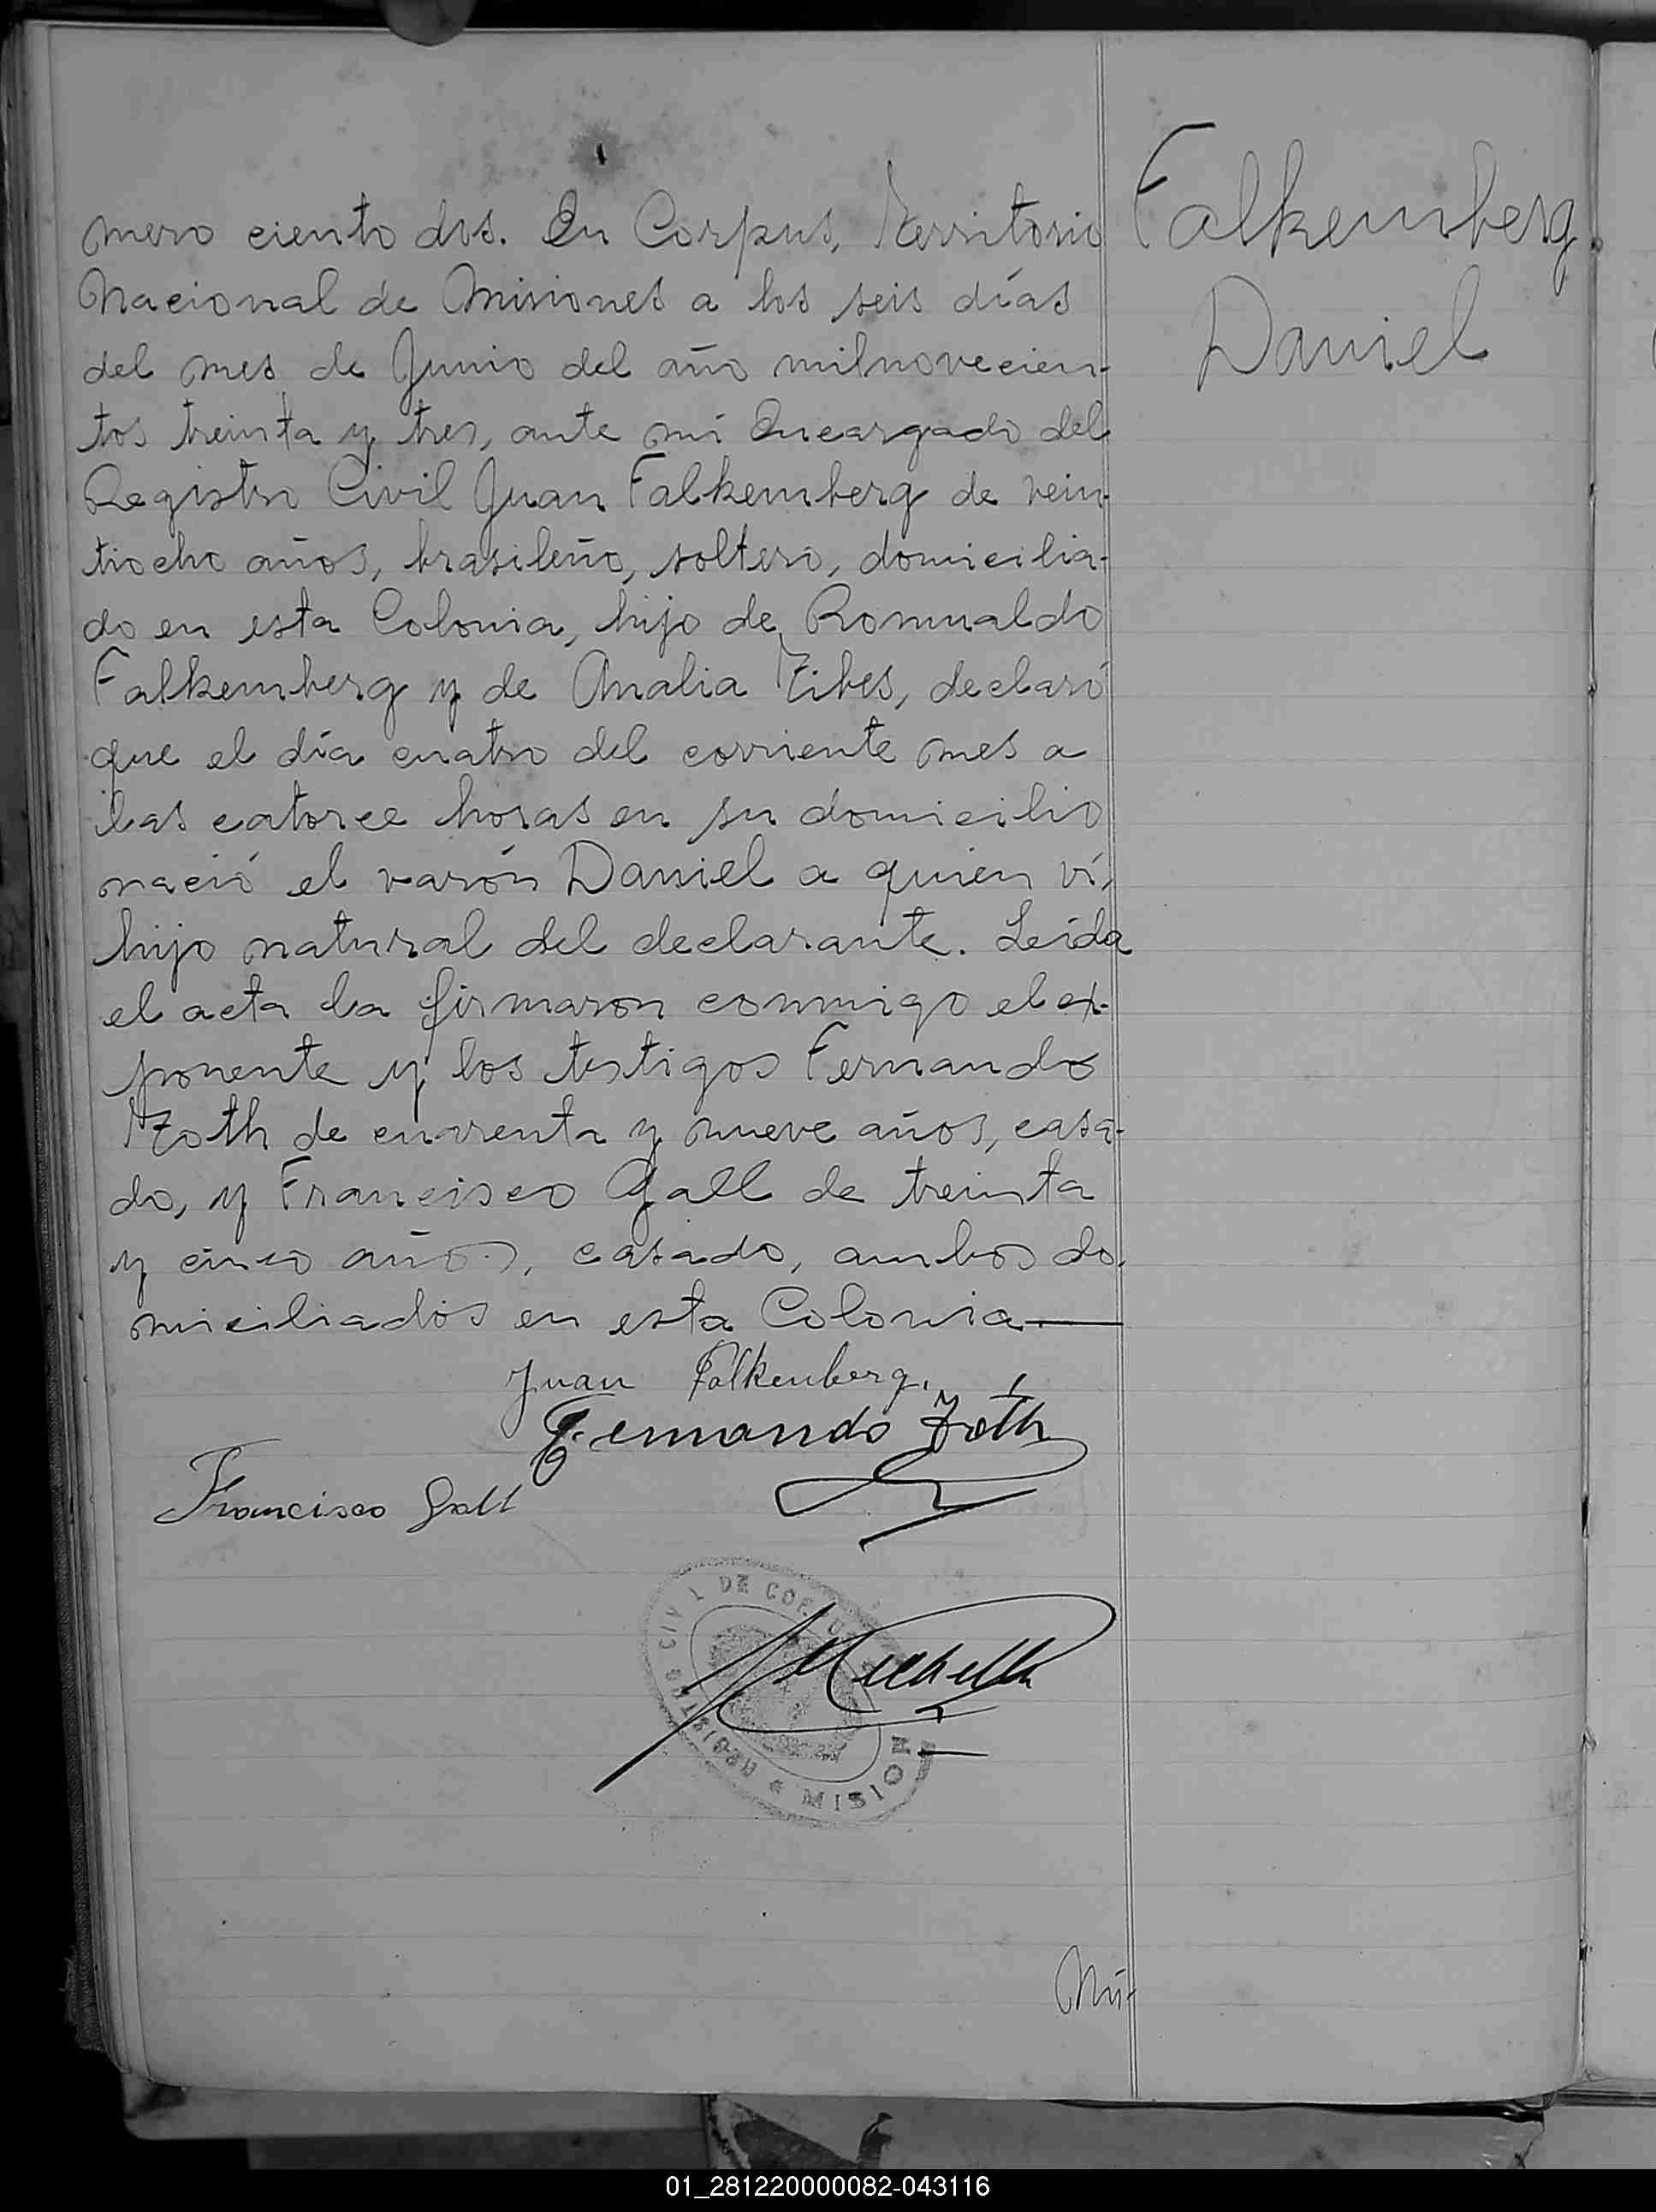 mero ciento dos. En Corpus, Territorio
Nacional de Misiones a los seis días
del mes de Junio del año milnovecien-
tos treinta y tres, ante mí Encargado del
Registro Civil Juan Falkemberg de vein-
tiocho años, brasileño, soltero, domicilia-
do en esta Colonia, hijo de Romualdo
Falkemberg y de Analia Tibes, declaró
que el día cuatro del corriente mes a
las catorce horas en su domicilio
nació el varón Daniel a quien ví,
hijo natural del declarante. Leída
el acta la firmaron conmigo el ex-
ponente y los testigos Fernando
Zoth de cuarenta y nueve años, casa-
do, y Francisco Gall de treinta
y cinco años, casado, ambos do-
miciliados en esta Colonia.
Falkemberg
Daniel
Juan Falkenberg.
Fernando Zoth
Francisco Gall
REGISTRO CIVIL DE CORPUS
* MISIONES
Nú-
01_281220000082-043116